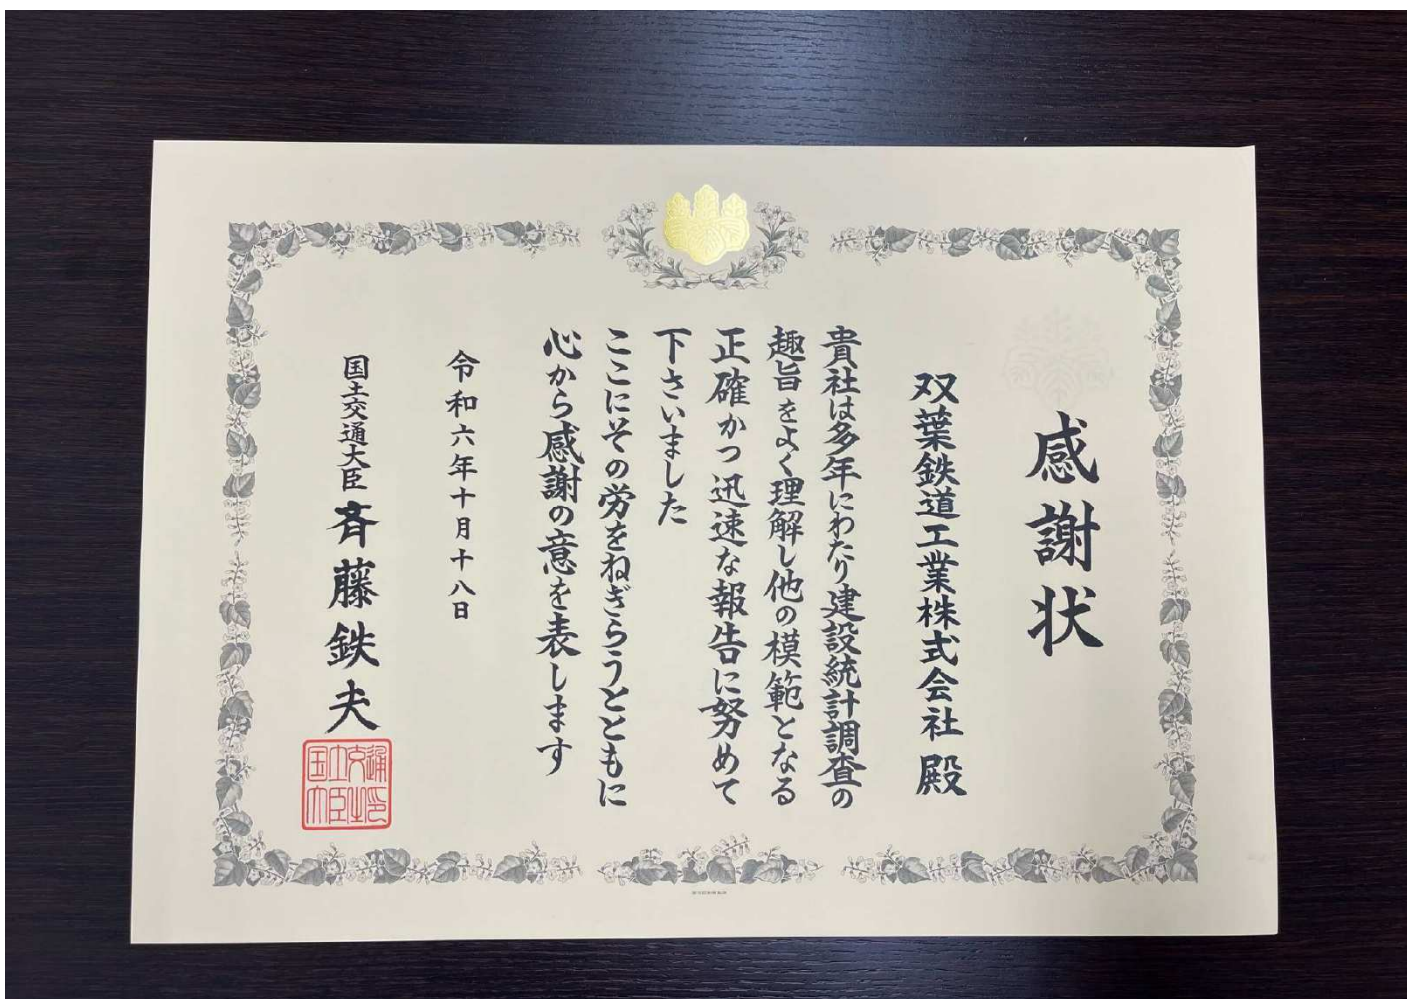 感謝状
双葉鉄道工業株式会社 殿
貴社は多年にわたり建設統計調査の
趣旨をよく理解し他の模範となる
正確かつ迅速な報告に努めて
下さいました
ここにその労をねぎらうとともに
心から感謝の意を表します
令和六年十月十八日
国土交通大臣 斉藤鉄夫